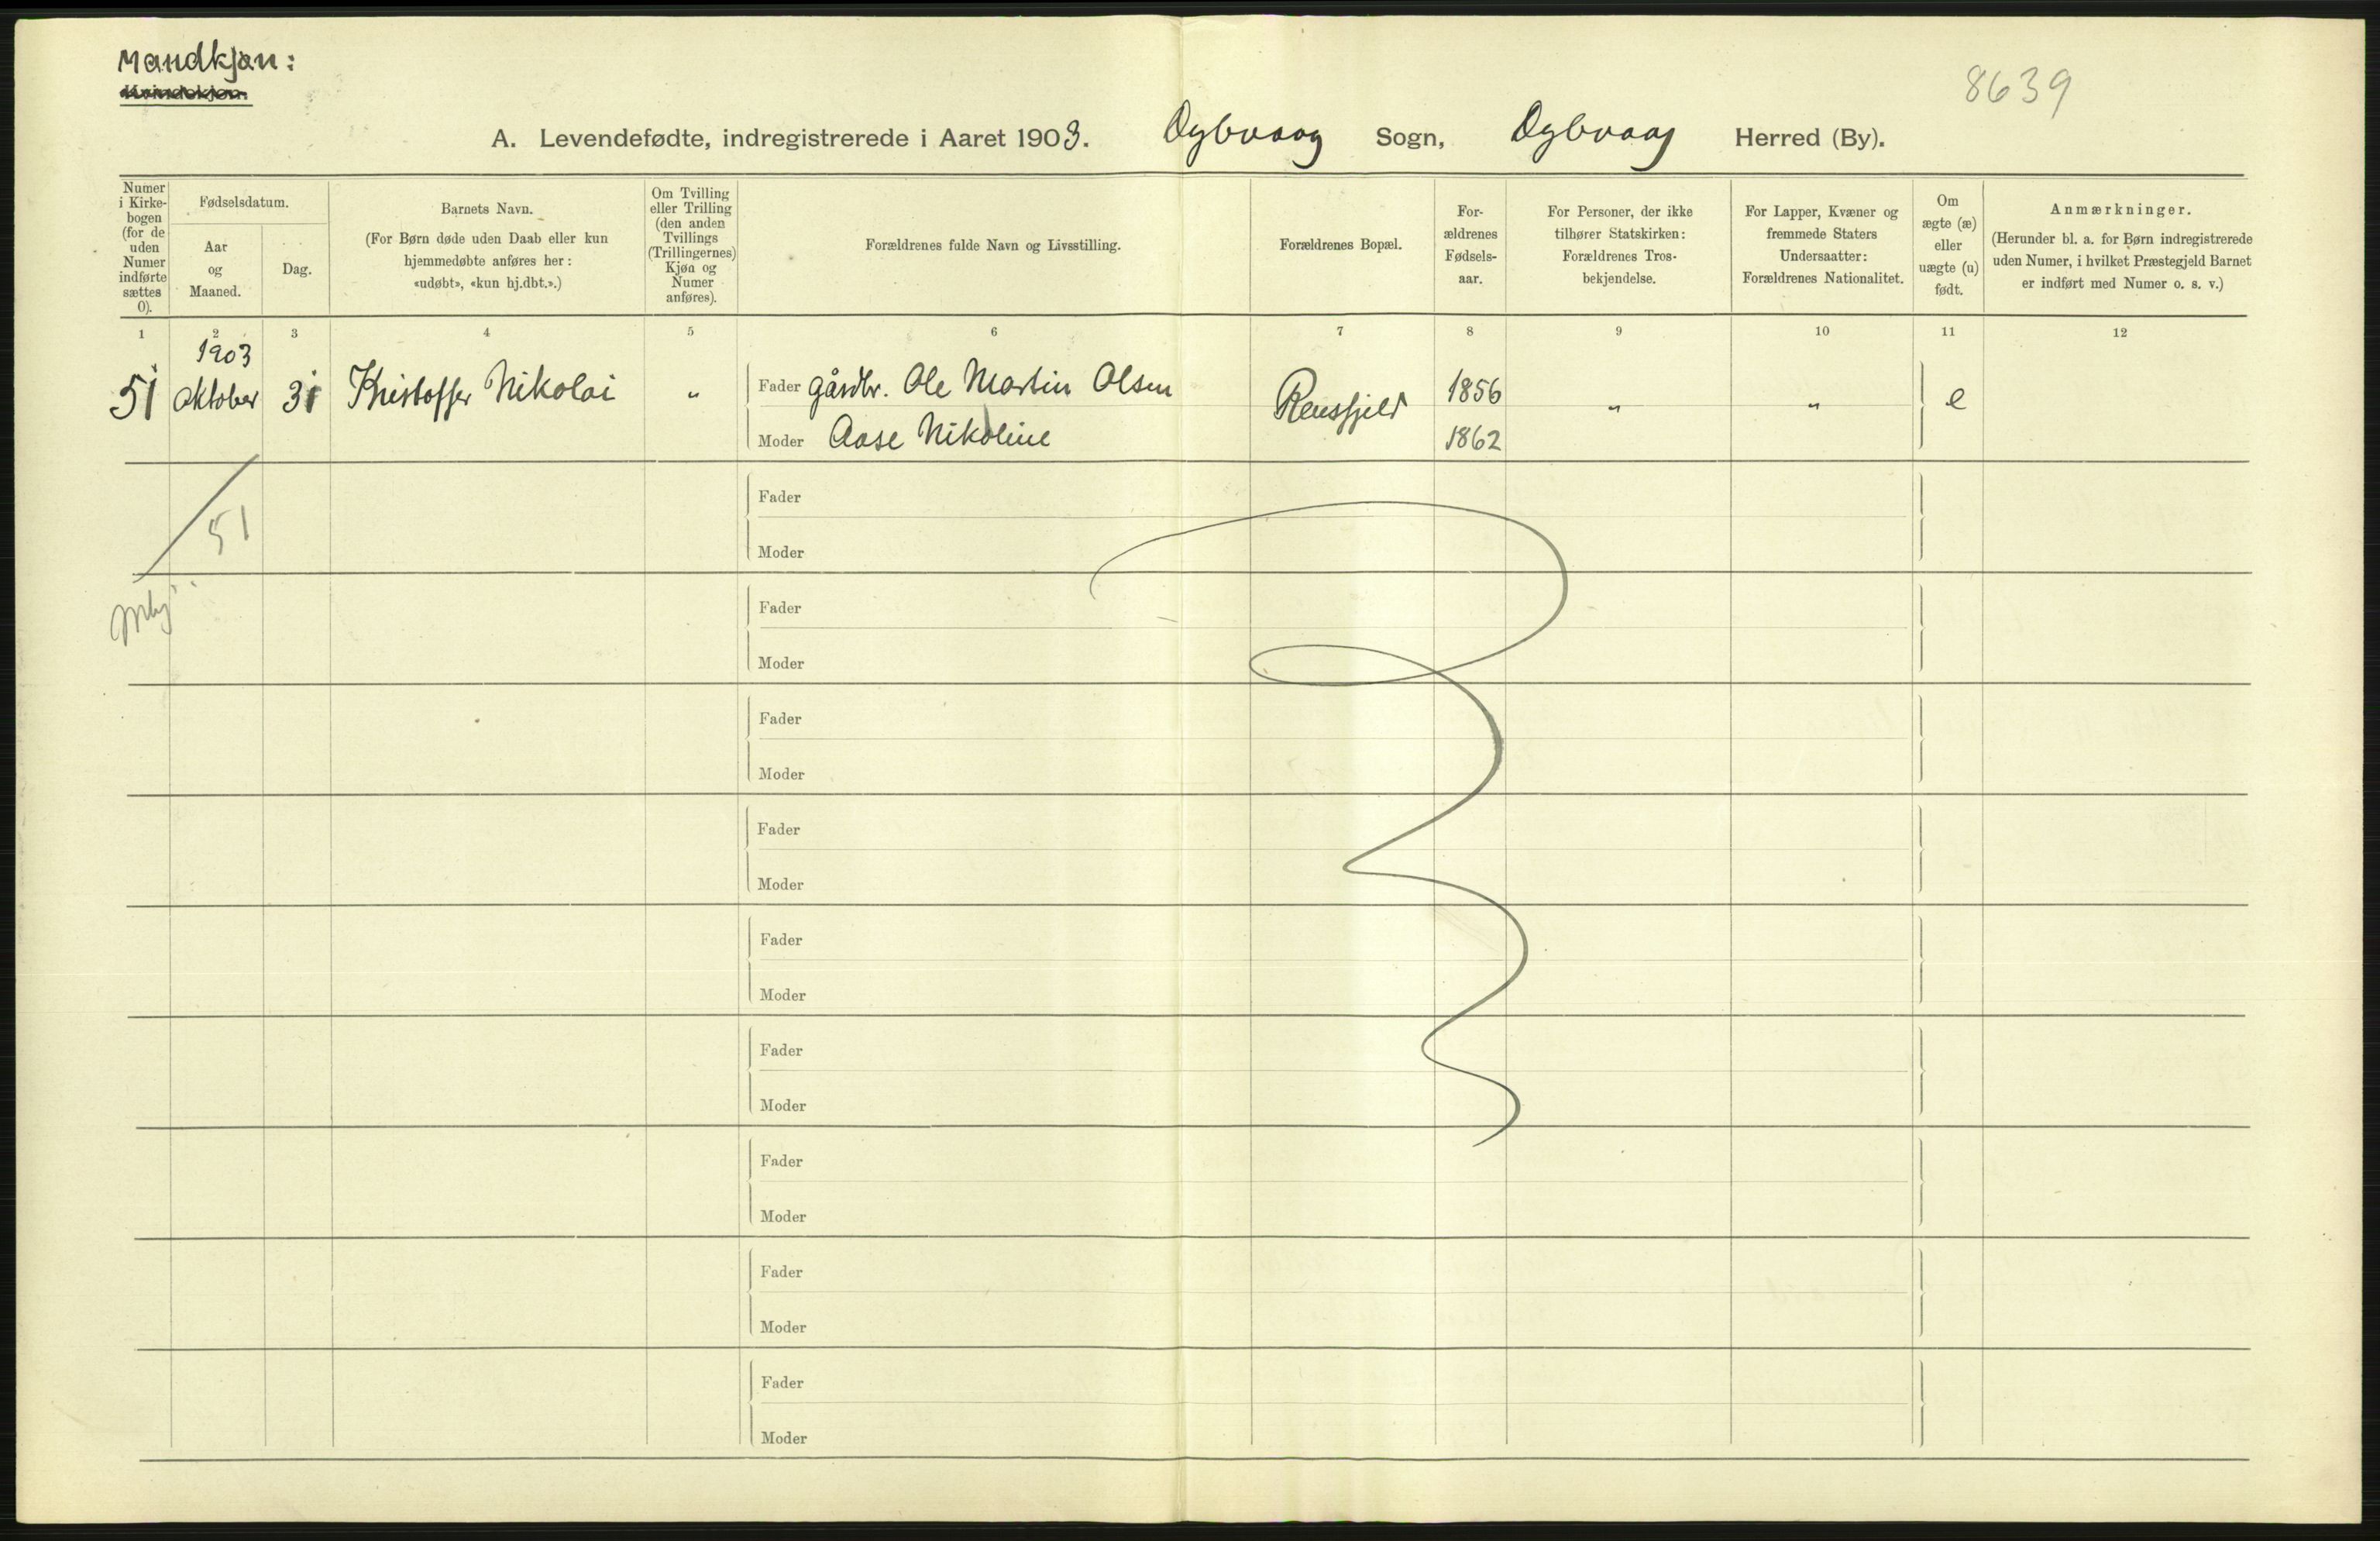 Mandkjøn:
Kvindekjøn.
8639
A. Levendefødte, indregistrerede i Aaret 1903. Dybvaag Sogn, Dybvaag Herred (By).
Numer i Kirkebogen (for de uden Numer indførte sættes 0).
Fødselsdatum.
Aar og Maaned.
Dag.
Barnets Navn.
(For Børn døde uden Daab eller kun
hjemmedøbte anføres her:
«udøbt», «kun hj.dbt.».)
Om Tvilling
eller Trilling
(den anden
Tvillings
(Trillingernes)
Kjøn og
Numer
anføres).
Forældrenes fulde Navn og Livsstilling.
Forældrenes Bopæl.
For-
ældrenes
Fødsels-
aar.
For Personer, der ikke
tilhører Statskirken:
Forældrenes Tros-
bekjendelse.
For Lapper, Kvæner og
fremmede Staters
Undersaatter:
Forældrenes Nationalitet.
Om
ægte (æ)
eller
uægte (u)
født.
Anmærkninger.
(Herunder bl. a. for Børn indregistrerede
uden Numer, i hvilket Præstegjeld Barnet
er indført med Numer o. s. v.)
1 2 3 4 5 6 7 8 9 10 11 12
1903
51 Oktober 31 Kristoffer Nikolai " Fader gårdbr. Ole Martin Olsen Rensfjeld 1856 " " e
Moder Aase Nikoline 1862
51
Fader
Moder
Fader
Moder
Fader
Moder
Fader
Moder
Fader
Moder
Fader
Moder
Fader
Moder
Fader
Moder
Fader
Moder